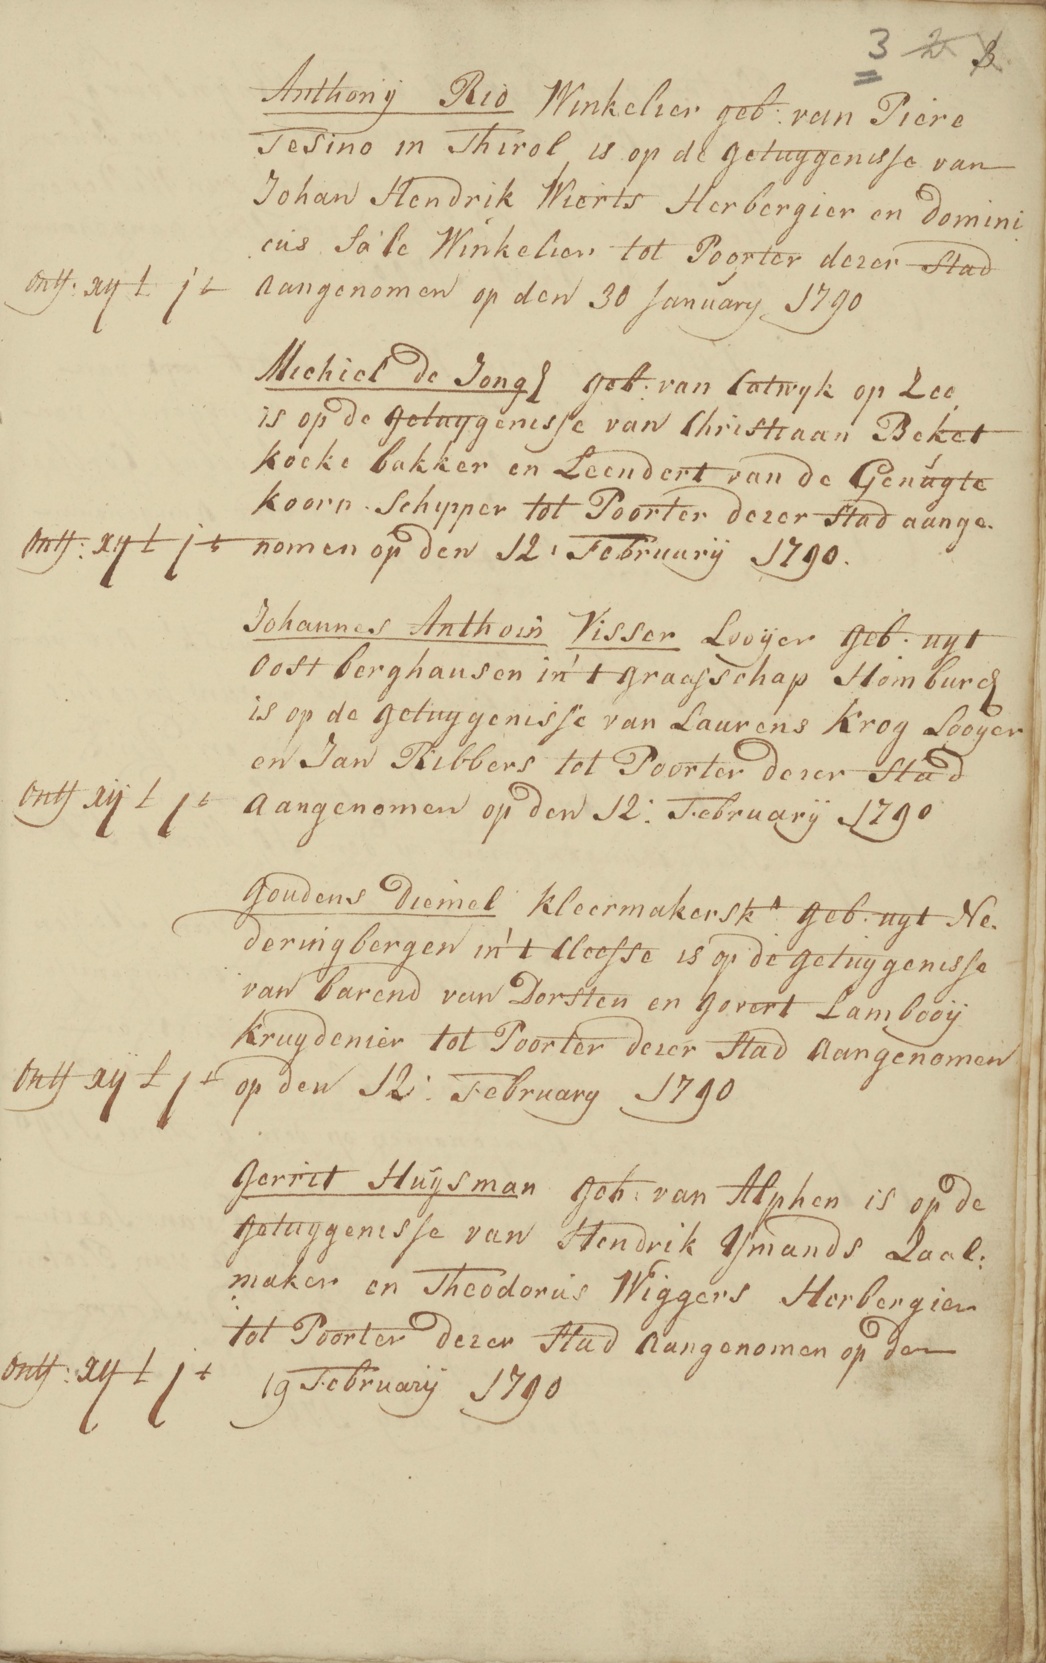 3 2 3
Anthonij Rio Winkelier geb: van Piere
Tesino in Thirol is op de getuygenisse van
Johan Hendrik Wierts Herbergier en Domini
cus Sale Winkelier tot Poorter dezer Stad
ontf: xij £ j st aangenomen op den 30 January 1790
Michiel de Jong geb: van Catwyk op Zee
is op de getuygenisse van Christiaan Beket
koeke bakker en Leendert van de Genúgte
koorn Schipper tot Poorter dezer Stad aange-
ontf: xij £ j st nomen op den 12: Februarij 1790.
Johannes Anthoin Visser Looijer geb: uyt
Oostberghausen in't graafschap Homburg
is op de getuygenisse van Laurens Krog Looyer
en Jan Ribbers tot Poorter dezer Stad
ontf xij £ j st aangenomen op den 12: Februarij 1790
Goudens Diemel kleermakersk.n geb. uyt Ne-
deringbergen in't Cleefse is op de getuygenisse
van barend van Dorsten en govert Lambooij
kruydenier tot Poorter dezer Stad aangenomen
ontf xij £ j st op den 12: February 1790
Gerrit Huijsman geb: van Alphen is op de
getuygenisse van Hendrik IJsmands Zaal-
maker en Theodorus Wiggers Herbergier
tot Poorter dezer Stad aangenomen op den
ontf: xij £ j st 19 Februarij 1790